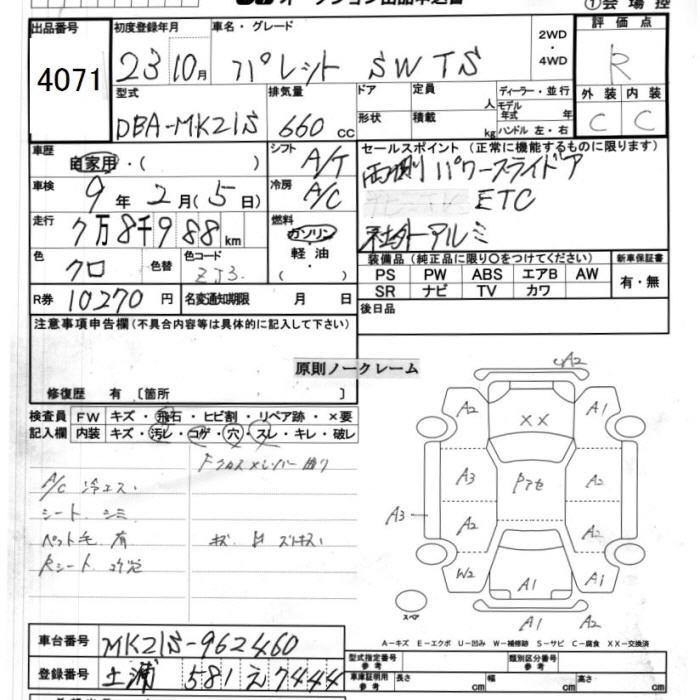 オークション出品申込書
①会場控
出品番号
4071
初度登録年月
23 10月
車名・グレード
パレット SW TS
2WD・4WD
評価点
R
型式
DBA-MK21S
排気量
660 cc
ドア
形状
定員
人
積載
kg
ディーラー・並行
モデル年式 年
ハンドル 左・右
外装
C
内装
C
車歴
自家用・( )
シフト
A/T
セールスポイント(正常に機能するものに限ります)
両側パワースライドア
ETC
社外アルミ
車検
9年 2月(5日)
冷房
A/C
走行
7万8千988km
燃料
ガソリン
軽油・
( )
色
クロ
色替
色コード
ZJ3
装備品(純正品に限り○をつけてください)
PS PW ABS エアB AW
SR ナビ TV カワ
新車保証書
有・無
R券 10270円
名変通知期限 月 日
後日品
注意事項申告欄(不具合内容等は具体的に記入して下さい)
原則ノークレーム
修復歴 有〔箇所 〕
検査員記入欄
FW キズ・飛石・ヒビ割・リペア跡・×要
内装 キズ・汚レ・コゲ・穴・スレ・キレ・破レ
A/C 冷エス
シート シミ
ペット毛 有
A2
A2
A1
XX
A3
A2
A3
A2
A2
W2
A1
A1
A1
A2
スペア
A-キズ E-エクボ U-凹み W-補修跡 S-サビ C-腐食 XX-交換済
車台番号
MK21S-962460
登録番号
土浦 581 え 7444
型式指定番号 参考
類別区分番号 参考
車庫証明用 参考
長さ cm 幅 cm 高さ cm